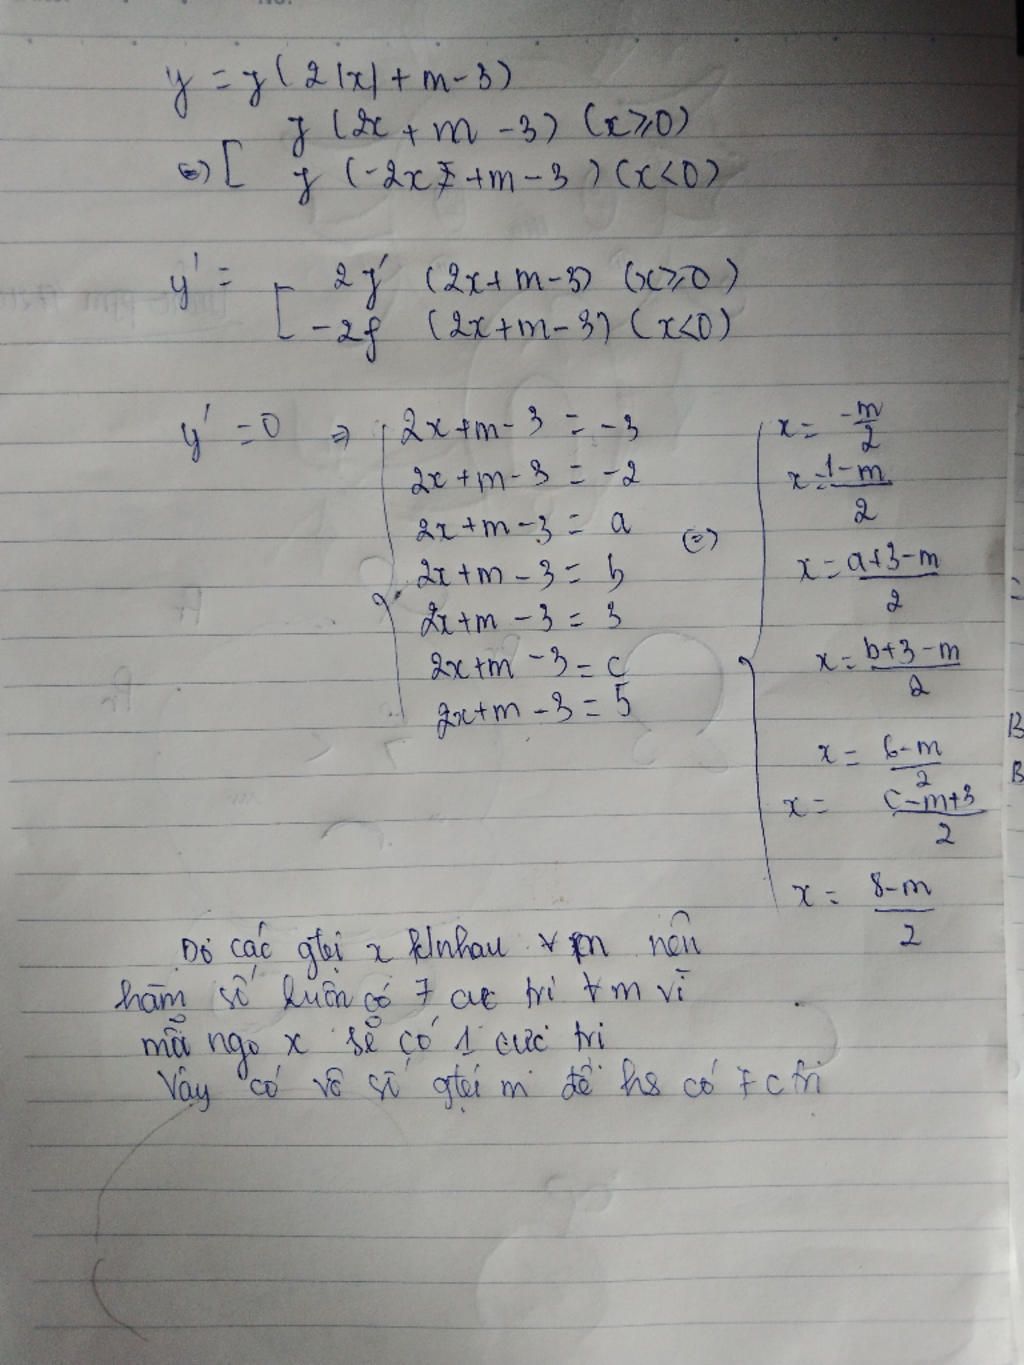 y = y(2|x| + m - 3)
y (2x + m - 3) (x ≥ 0)
⇔ [ y (-2x + m - 3) (x < 0)
y' = [ 2y' (2x + m - 3) (x ≥ 0)
-2f (2x + m - 3) (x < 0)
y' = 0 ⇒ 2x + m - 3 = -3
2x + m - 3 = -2
2x + m - 3 = a
2x + m - 3 = b
2x + m - 3 = 3
2x + m - 3 = c
2x + m - 3 = 5
⇔ x = -m/2
x = 1-m/2
x = a+3-m/2
x = b+3-m/2
x = 6-m/2
x = c-m+3/2
x = 8-m/2
Do các gtrị x k/nhau ∀m nên
hàm số luôn có 7 cực trị ∀m vì
mỗi ngo x sẽ có 1 cực trị
Vậy có vô số gtrị m để hs có 7 ctri
B
B